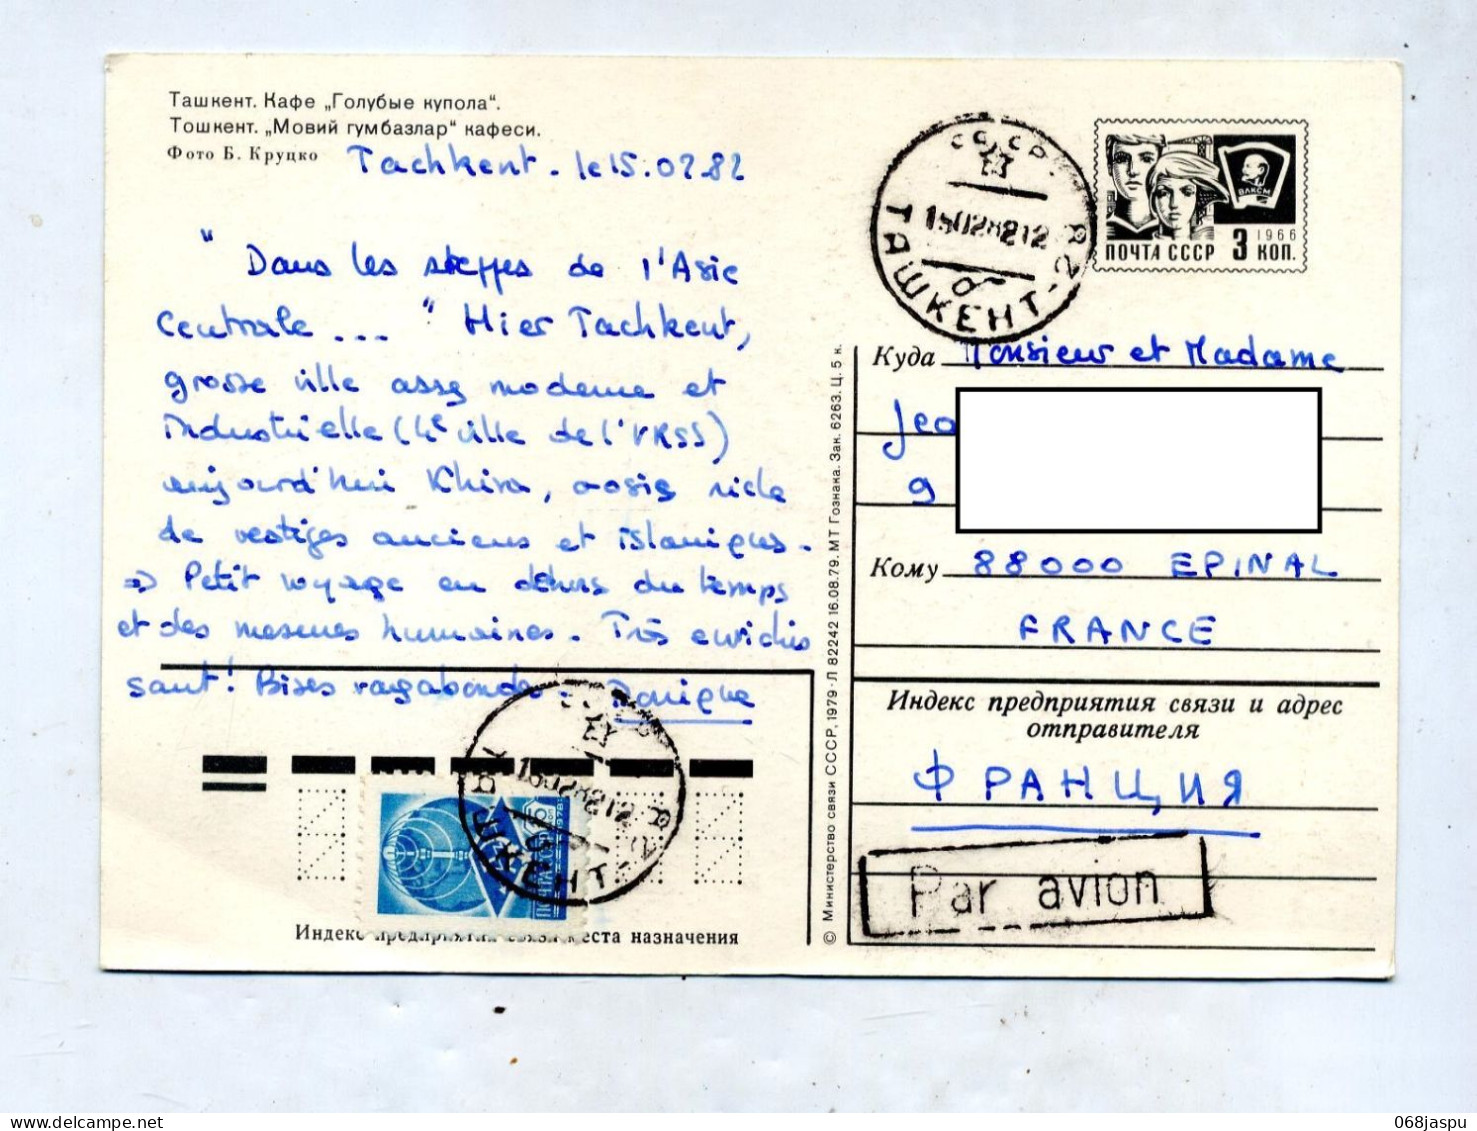 Ташкент. Кафе „Голубые купола“.
Тошкент. „Мовий гумбазлар“ кафеси.
Фото Б. Круцко
Tachkent. le 15.02.82
" Dans les steppes de l'Asie
Centrale ... " Hier Tachkent,
grosse ville assez moderne et
Industrielle (4e ville de l'URSS)
aujourd'hui Khiva, oasis riche
de vestiges anciens et islamiques.
⇒ Petit voyage en dehors du temps
et des mesures humaines. Très
sant! Bises vagabondes.
Индекс предприятия связи места назначения
ПОЧТА СССР 3 КОП.
1966
ВЛКСМ
СССР
ТАШКЕНТ-2
15028212
Куда Monsieur et Madame
Jeo
9
Кому 88000 EPINAL
FRANCE
Индекс предприятия связи и адрес
отправителя
ФРАНЦИЯ
Par avion
© Министерство связи СССР, 1979 · Л 82242 16.08.79. МТ Гознака. Зак. 6263. Ц. 5 к.
15028212
068jaspu